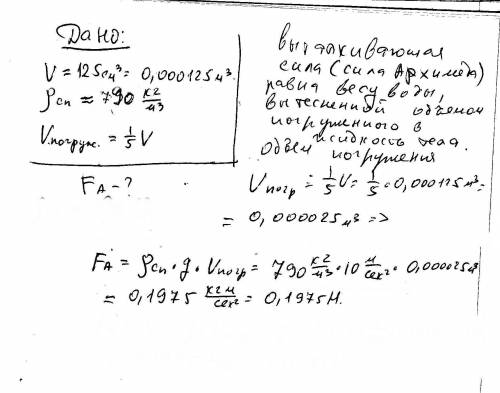 Дано:
V = 125см³ = 0,000125м³.
ρсп ≈ 790 кг/м³
Vпогруж. = 1/5 V
FА - ?
выталкивающая
сила (сила Архимеда)
равна весу воды,
вытесненной объемом
погруженного в
жидкость тела.
Объем погружения
Vпогр = 1/5 V = 1/5 · 0,000125м³ =
= 0,000025м³ =>
FА = ρсп · g · Vпогр = 790 кг/м³ · 10 м/сек² · 0,000025м³
= 0,1975 кг м/сек² = 0,1975Н.